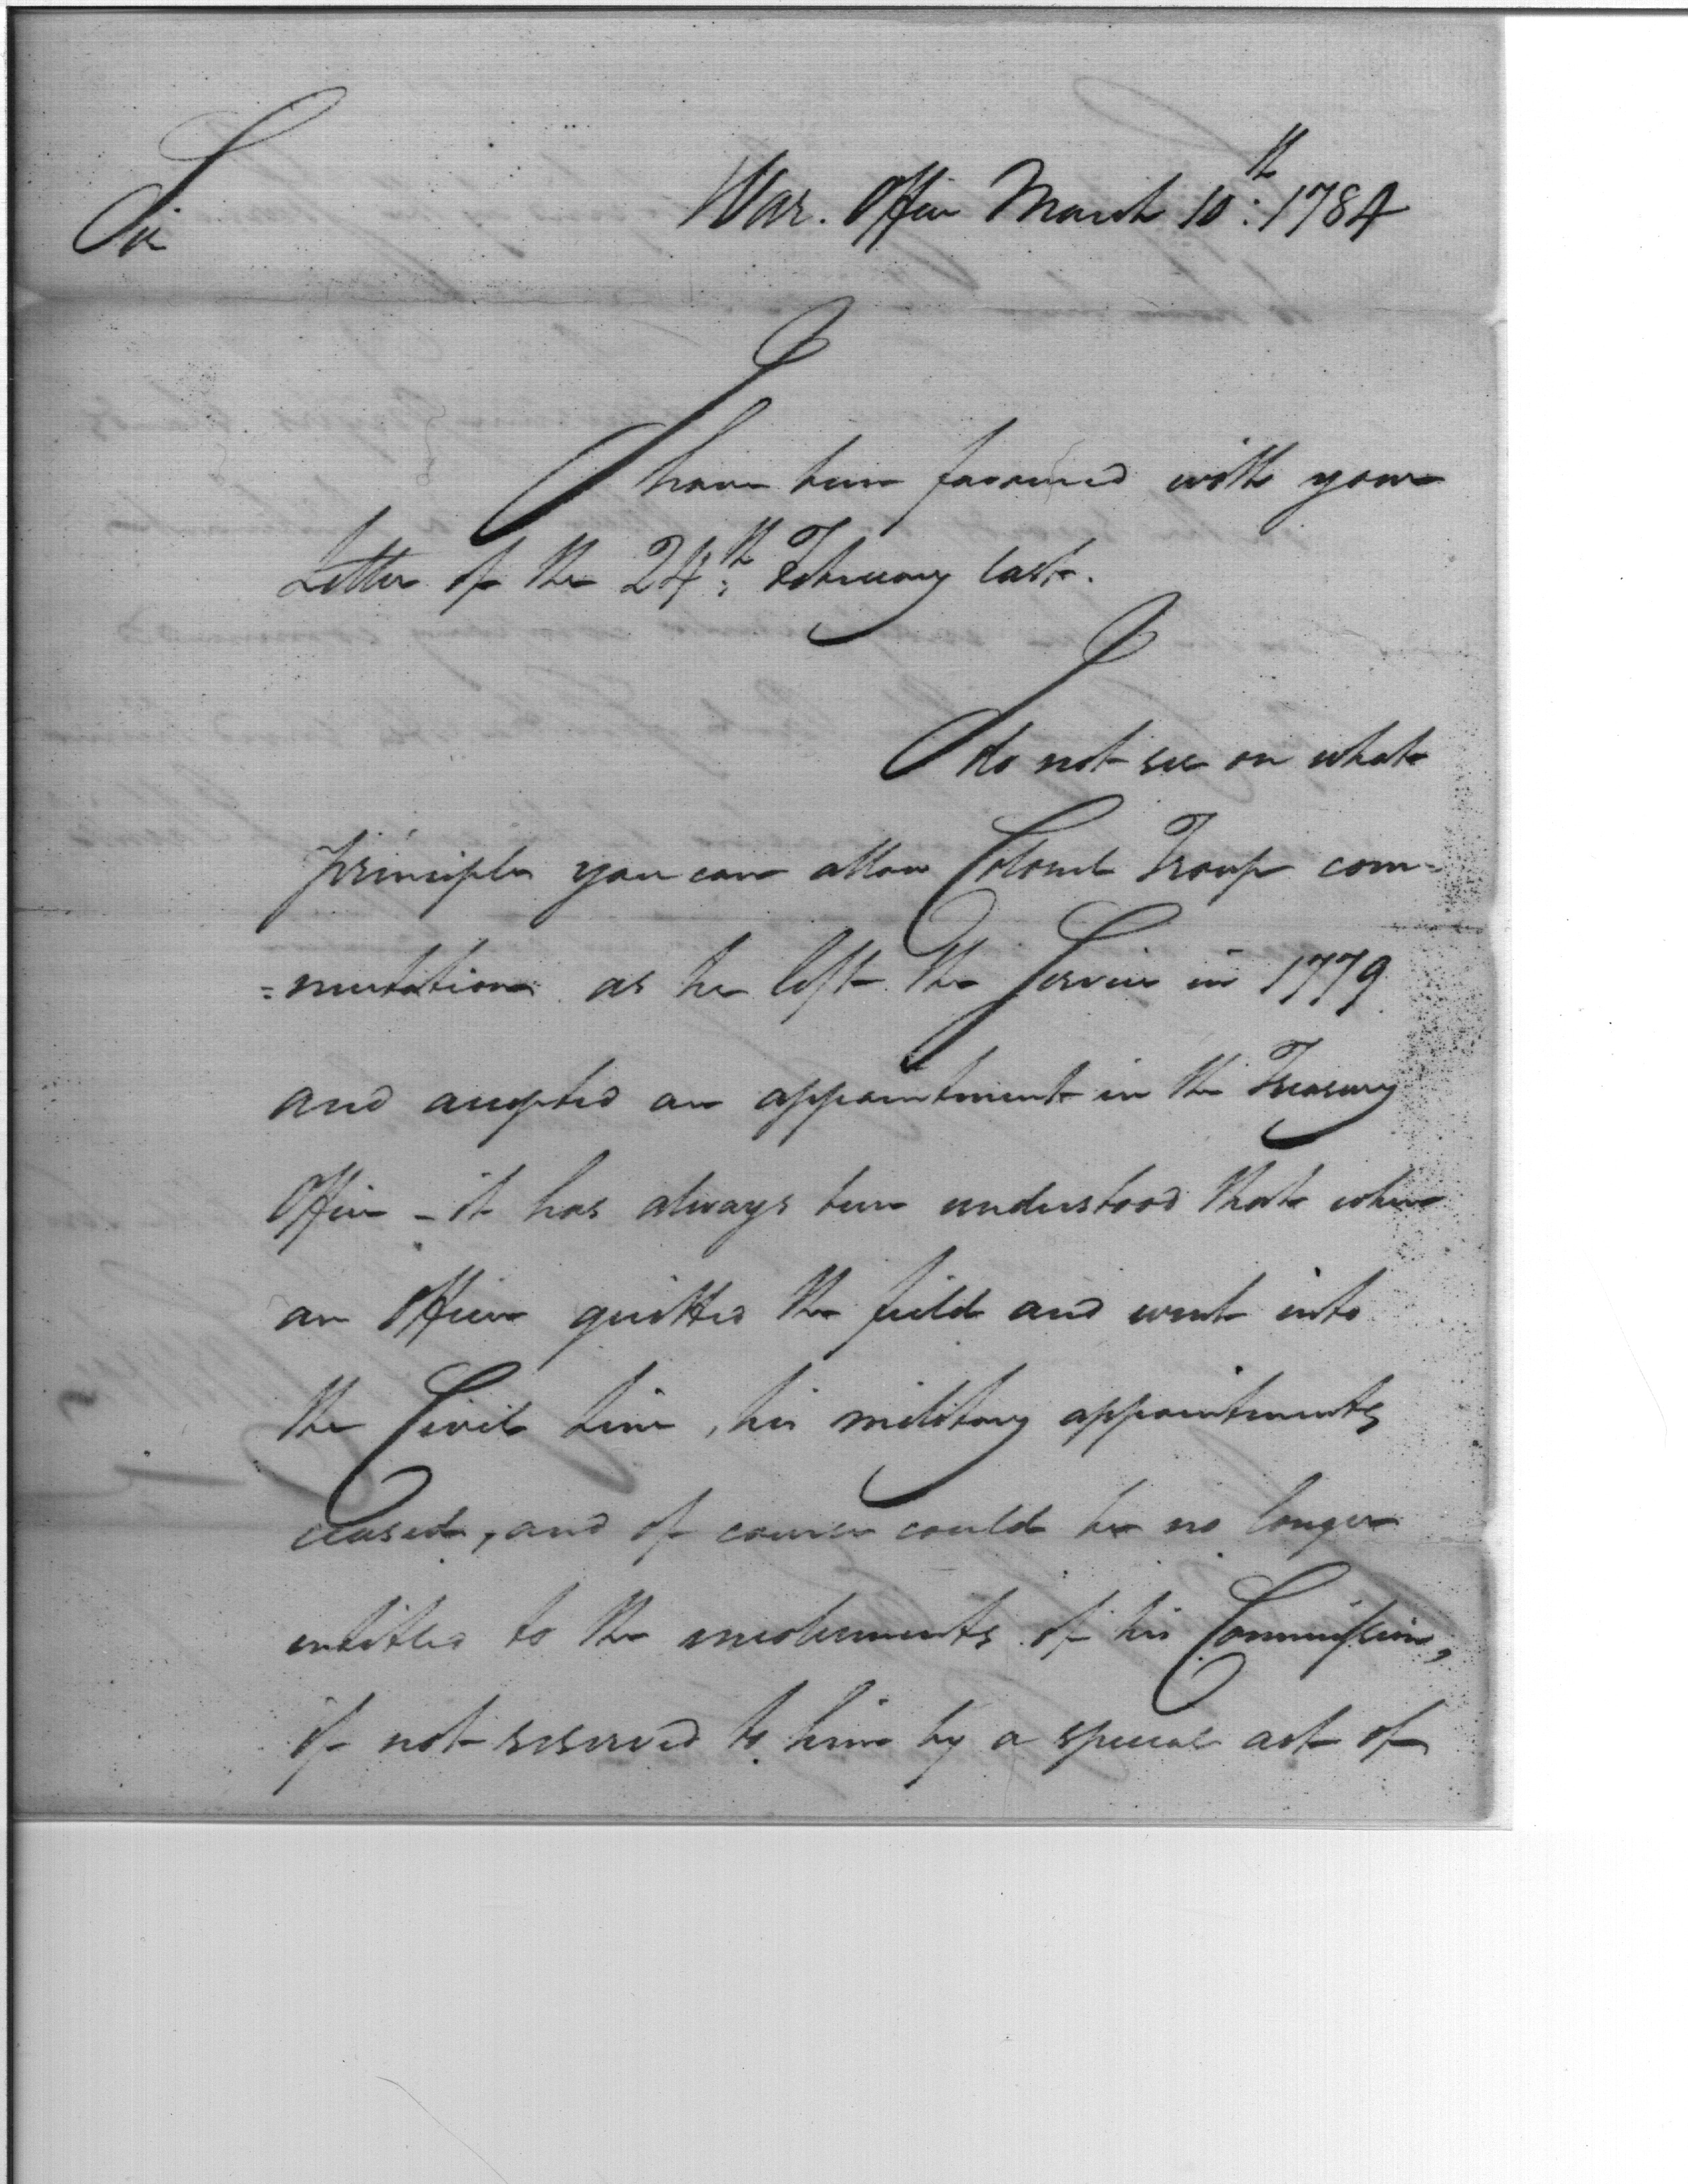 Sir
War. Office March 10th: 1784
I have been favoured with your
Letter of the 24th: February last.
I do not see on what
principles you can allow Colonel Troup com=
=mutation as he left the Service in 1779
and accepted an appointment in the Treasury
Office - it has always been understood that when
an Officer quitted the field and went into
the Civil line, his military appointments
ceased, and of course could be no longer
entitled to the emoluments of his Commission,
if not reserved to him by a special act of